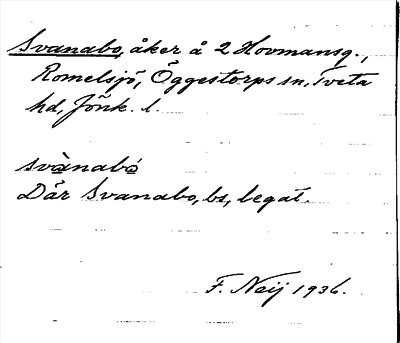 Svanabo, åker å 2 Hovmansg.,
Romelsjö, Öggestorps sn, Tveta
hd, Jönk. l.
svànabó
Där Svanabo, bs, legat.
F. Neij 1936.